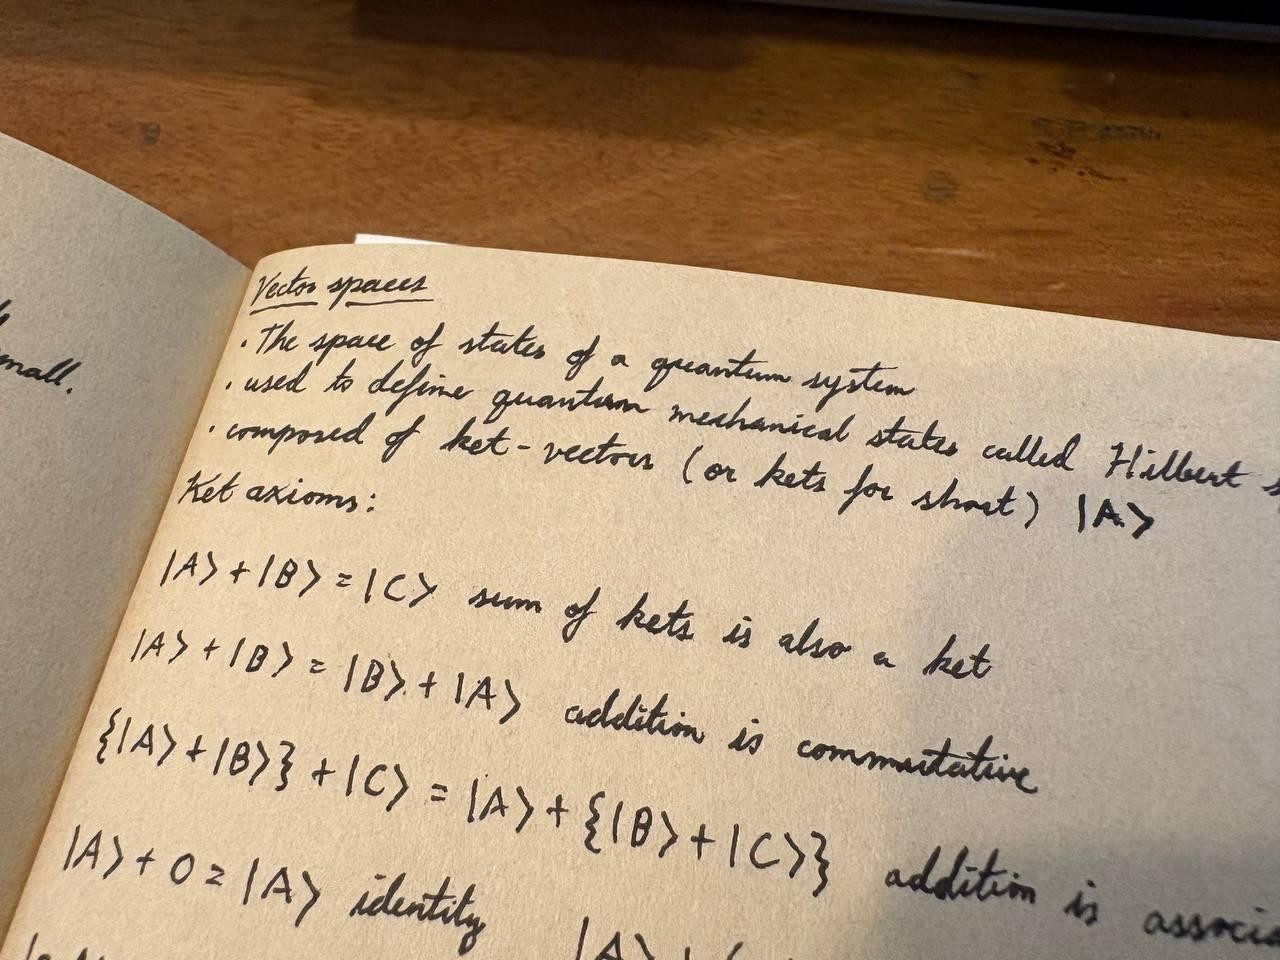 small.
Vector spaces
· The space of states of a quantum system
· used to define quantum mechanical states called Hilbert
· composed of ket-vectors (or kets for short) |A⟩
Ket axioms:
|A⟩ + |B⟩ = |C⟩ sum of kets is also a ket
|A⟩ + |B⟩ = |B⟩ + |A⟩ addition is commutative
{|A⟩ + |B⟩} + |C⟩ = |A⟩ + {|B⟩ + |C⟩} addition is associa
|A⟩ + 0 = |A⟩ identity |A⟩ + (